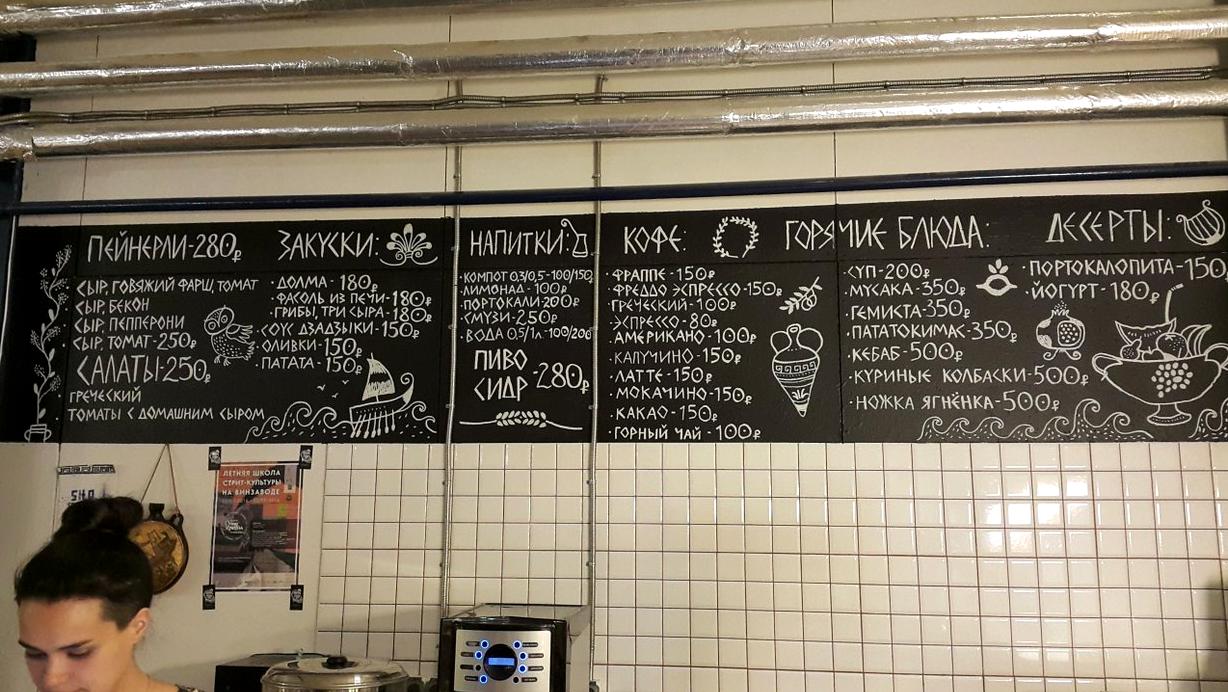 ПЕЙНЕРЛИ-280₽
СЫР, ГОВЯЖИЙ ФАРШ, ТОМАТ
СЫР, БЕКОН
СЫР, ПЕППЕРОНИ
СЫР, ТОМАТ-250₽
САЛАТЫ-250₽
ГРЕЧЕСКИЙ
ТОМАТЫ С ДОМАШНИМ СЫРОМ
ЗАКУСКИ:
·ДОЛМА-180₽
·ФАСОЛЬ ИЗ ПЕЧИ-180₽
·ГРИБЫ, ТРИ СЫРА-180₽
·СОУС ДЗАДЗЫКИ-150₽
·ОЛИВКИ-150₽
·ПАТАТА-150₽
НАПИТКИ:
·КОМПОТ 0.3/0,5-100/150₽
·ЛИМОНАД-100₽
·ПОРТОКАЛИ-200₽
·СМУЗИ-250₽
·ВОДА 0.5/1л-100/200
ПИВО
СИДР-280₽
КОФЕ:
·ФРАППЕ-150₽
·ФРЕДДО ЭСПРЕССО-150₽
·ГРЕЧЕСКИЙ-100₽
·ЭСПРЕССО-80₽
·АМЕРИКАНО-100₽
·КАПУЧИНО-150₽
·ЛАТТЕ-150₽
·МОКАЧИНО-150₽
·КАКАО-150₽
·ГОРНЫЙ ЧАЙ-100₽
ГОРЯЧИЕ БЛЮДА:
·СУП-200₽
·МУСАКА-350₽
·ГЕМИСТА-350₽
·ПАТАТОКИМАС-350₽
·КЕБАБ-500₽
·КУРИНЫЕ КОЛБАСКИ-500₽
·НОЖКА ЯГНЁНКА-500₽
ДЕСЕРТЫ:
·ПОРТОКАЛОПИТА-150
·ЙОГУРТ-180₽
ЛЕТНЯЯ ШКОЛА
СТРИТ-КУЛЬТУРЫ
НА ВИНЗАВОДЕ